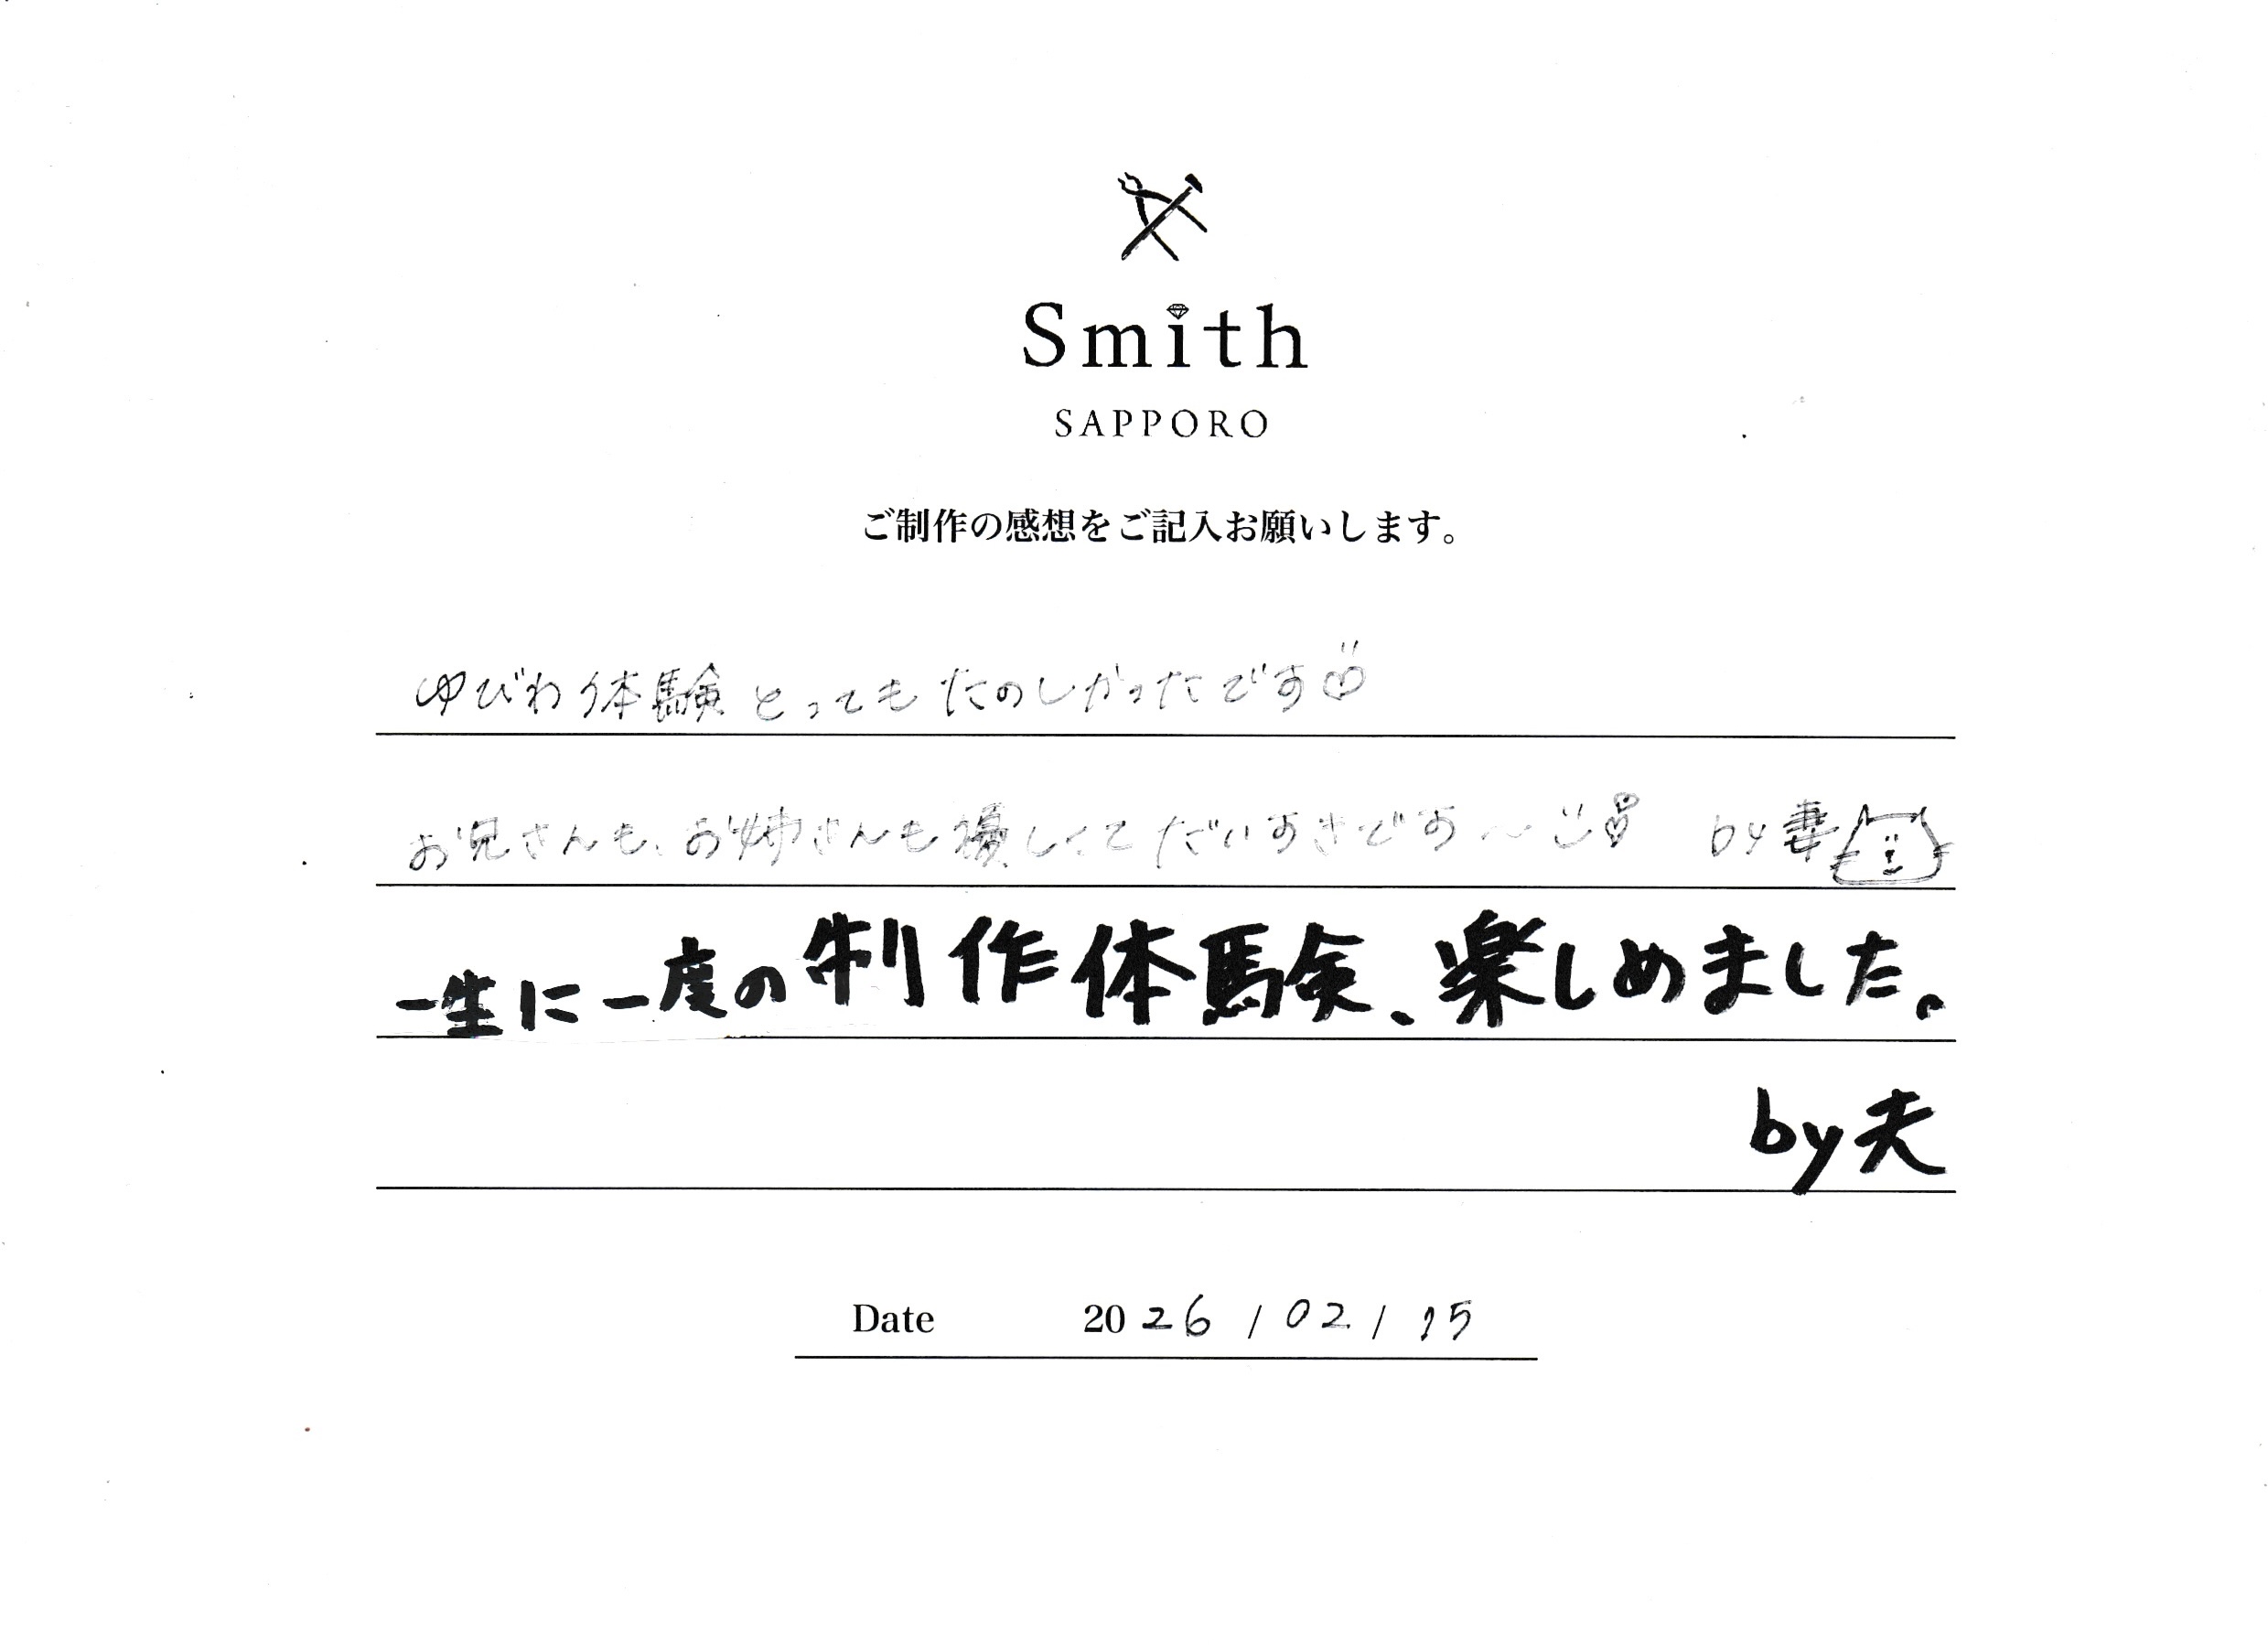 Smith
SAPPORO
ご制作の感想をご記入お願いします。
ゆびわ体験とってもたのしかったです
お兄さんも、お姉さんも優しくてだいすきです〜 by妻
一生に一度の制作体験、楽しめました。
by夫
Date 2026/02/15